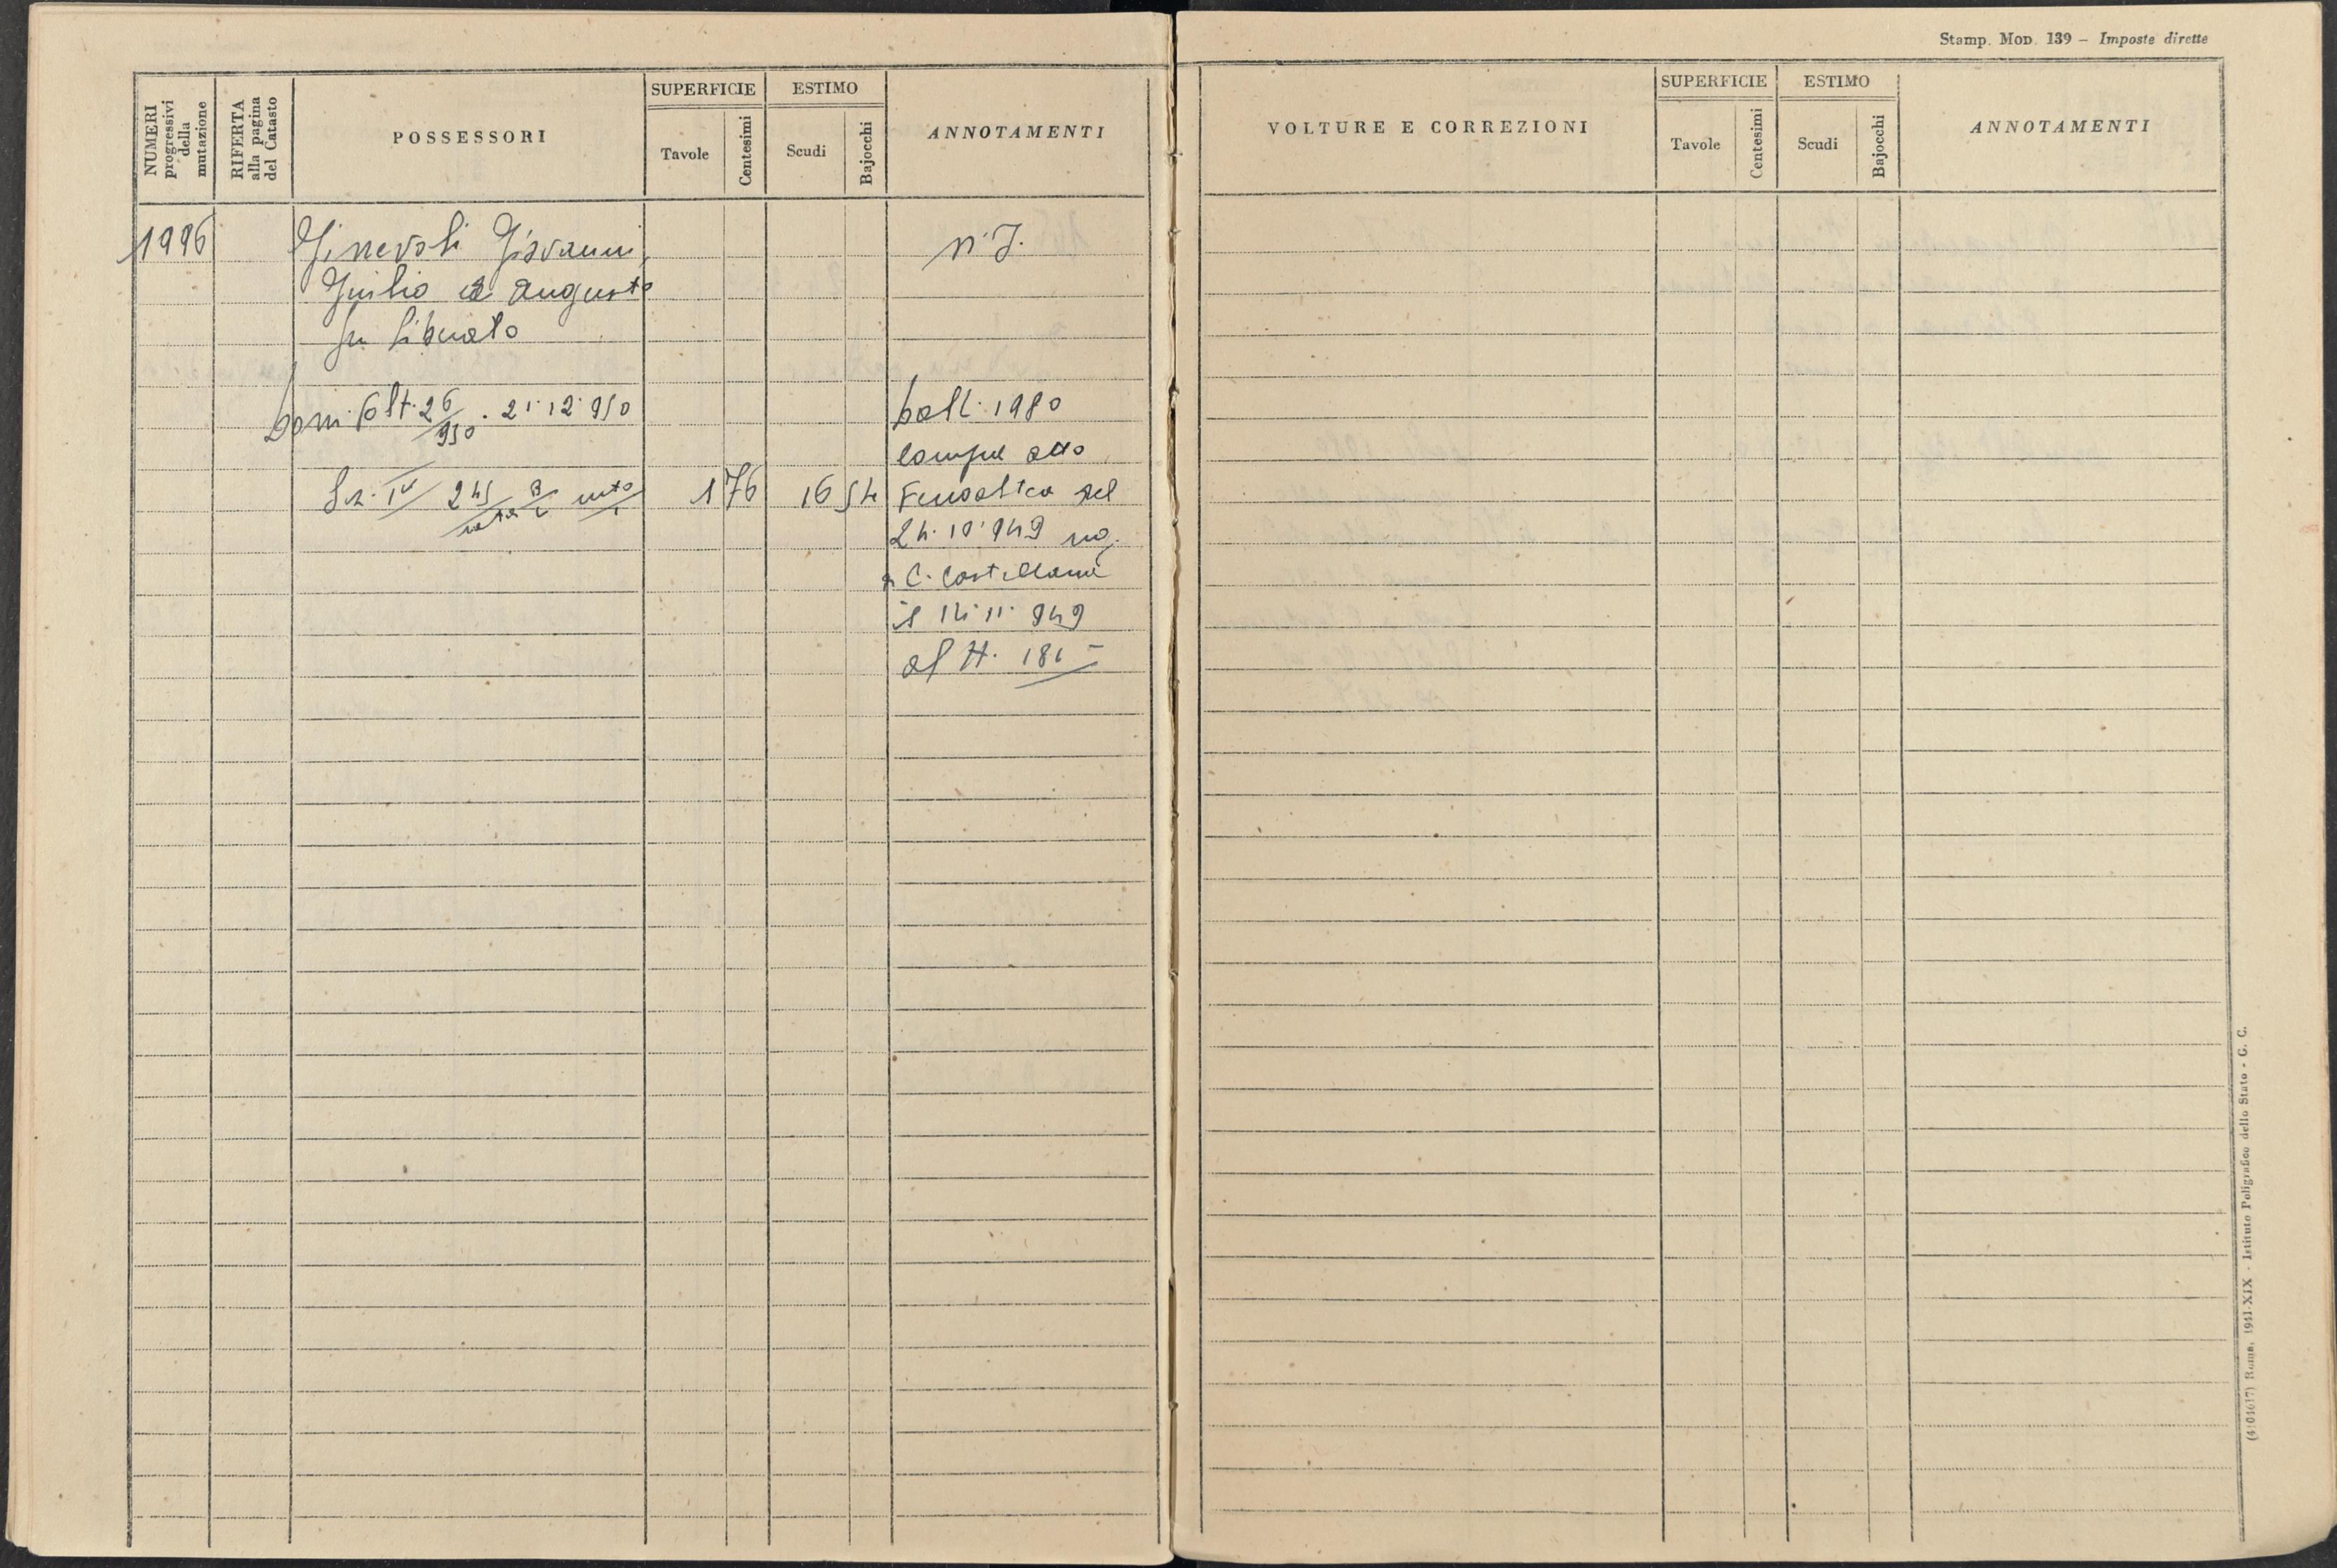 Stamp. Mod. 139 – Imposte dirette
NUMERI progressivi della mutazione
RIFERTA alla pagina del Catasto
POSSESSORI
SUPERFICIE
Tavole
Centesimi
ESTIMO
Scudi
Bajocchi
ANNOTAMENTI
VOLTURE E CORREZIONI
SUPERFICIE
Tavole
Centesimi
ESTIMO
Scudi
Bajocchi
ANNOTAMENTI
1996
Ginevoli Giovanni,
Giulio e Augusto
fu Liberato
n. J.
21·12·950
26/950
Sez. IV 245 1 76 16 54
1980
atto
del
24·10·949
C. Castellana
il 14·11·949
al H. 181
(4101617) Roma, 1941-XIX - Istituto Poligrafico dello Stato - G. C.